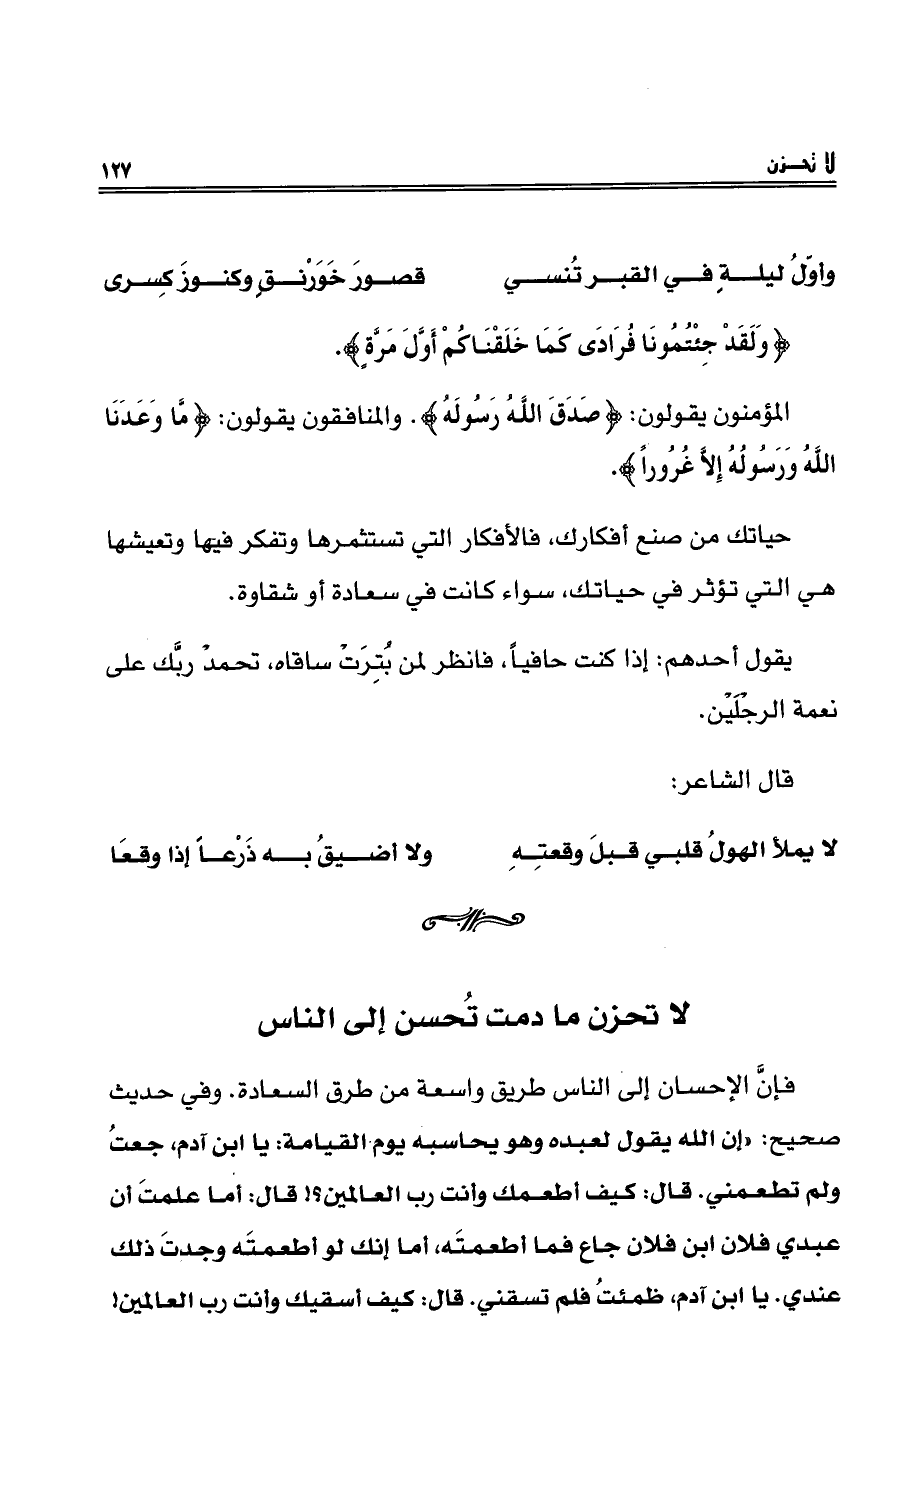 لا تحـزن ١٢٧
وأوّلُ ليلـــةٍ فـــي القبـــر تُنســـي قصـــورَ خَوَرْنـــقٍ وكنـــوزَ كِســـرى
﴿ وَلَقَدْ جِئْتُمُونَا فُرَادَى كَمَا خَلَقْنَاكُمْ أَوَّلَ مَرَّةٍ ﴾.
المؤمنون يقولون: ﴿ صَدَقَ اللَّهُ رَسُولَهُ ﴾. والمنافقون يقولون: ﴿ مَّا وَعَدَنَا
اللَّهُ وَرَسُولُهُ إِلاَّ غُرُوراً ﴾.
حياتك من صنع أفكارك، فالأفكار التي تستثمرها وتفكر فيها وتعيشها
هي التي تؤثر في حياتك، سواء كانت في سعادة أو شقاوة.
يقول أحدهم: إذا كنت حافياً، فانظر لمن بُتِرَتْ ساقاه، تحمدْ ربَّك على
نعمة الرجْلَيْن.
قال الشاعر:
لا يملأ الهولُ قلبـي قبـلَ وقعتِـهِ ولا أضـــيقُ بـــه ذَرْعـــاً إذا وقـعَا
لا تحزن ما دمت تُحسن إلى الناس
فإنَّ الإحسان إلى الناس طريق واسعة من طرق السعادة. وفي حديث
صحيح: «إن الله يقول لعبده وهو يحاسبه يوم القيامة: يا ابن آدم، جعتُ
ولم تطعمني. قال: كيف أطعمك وأنت رب العالمين؟! قال: أما علمتَ أن
عبدي فلان ابن فلان جاع فما أطعمتَه، أما إنك لو أطعمتَه وجدتَ ذلك
عندي. يا ابن آدم، ظمئتُ فلم تسقني. قال: كيف أسقيك وأنت رب العالمين!